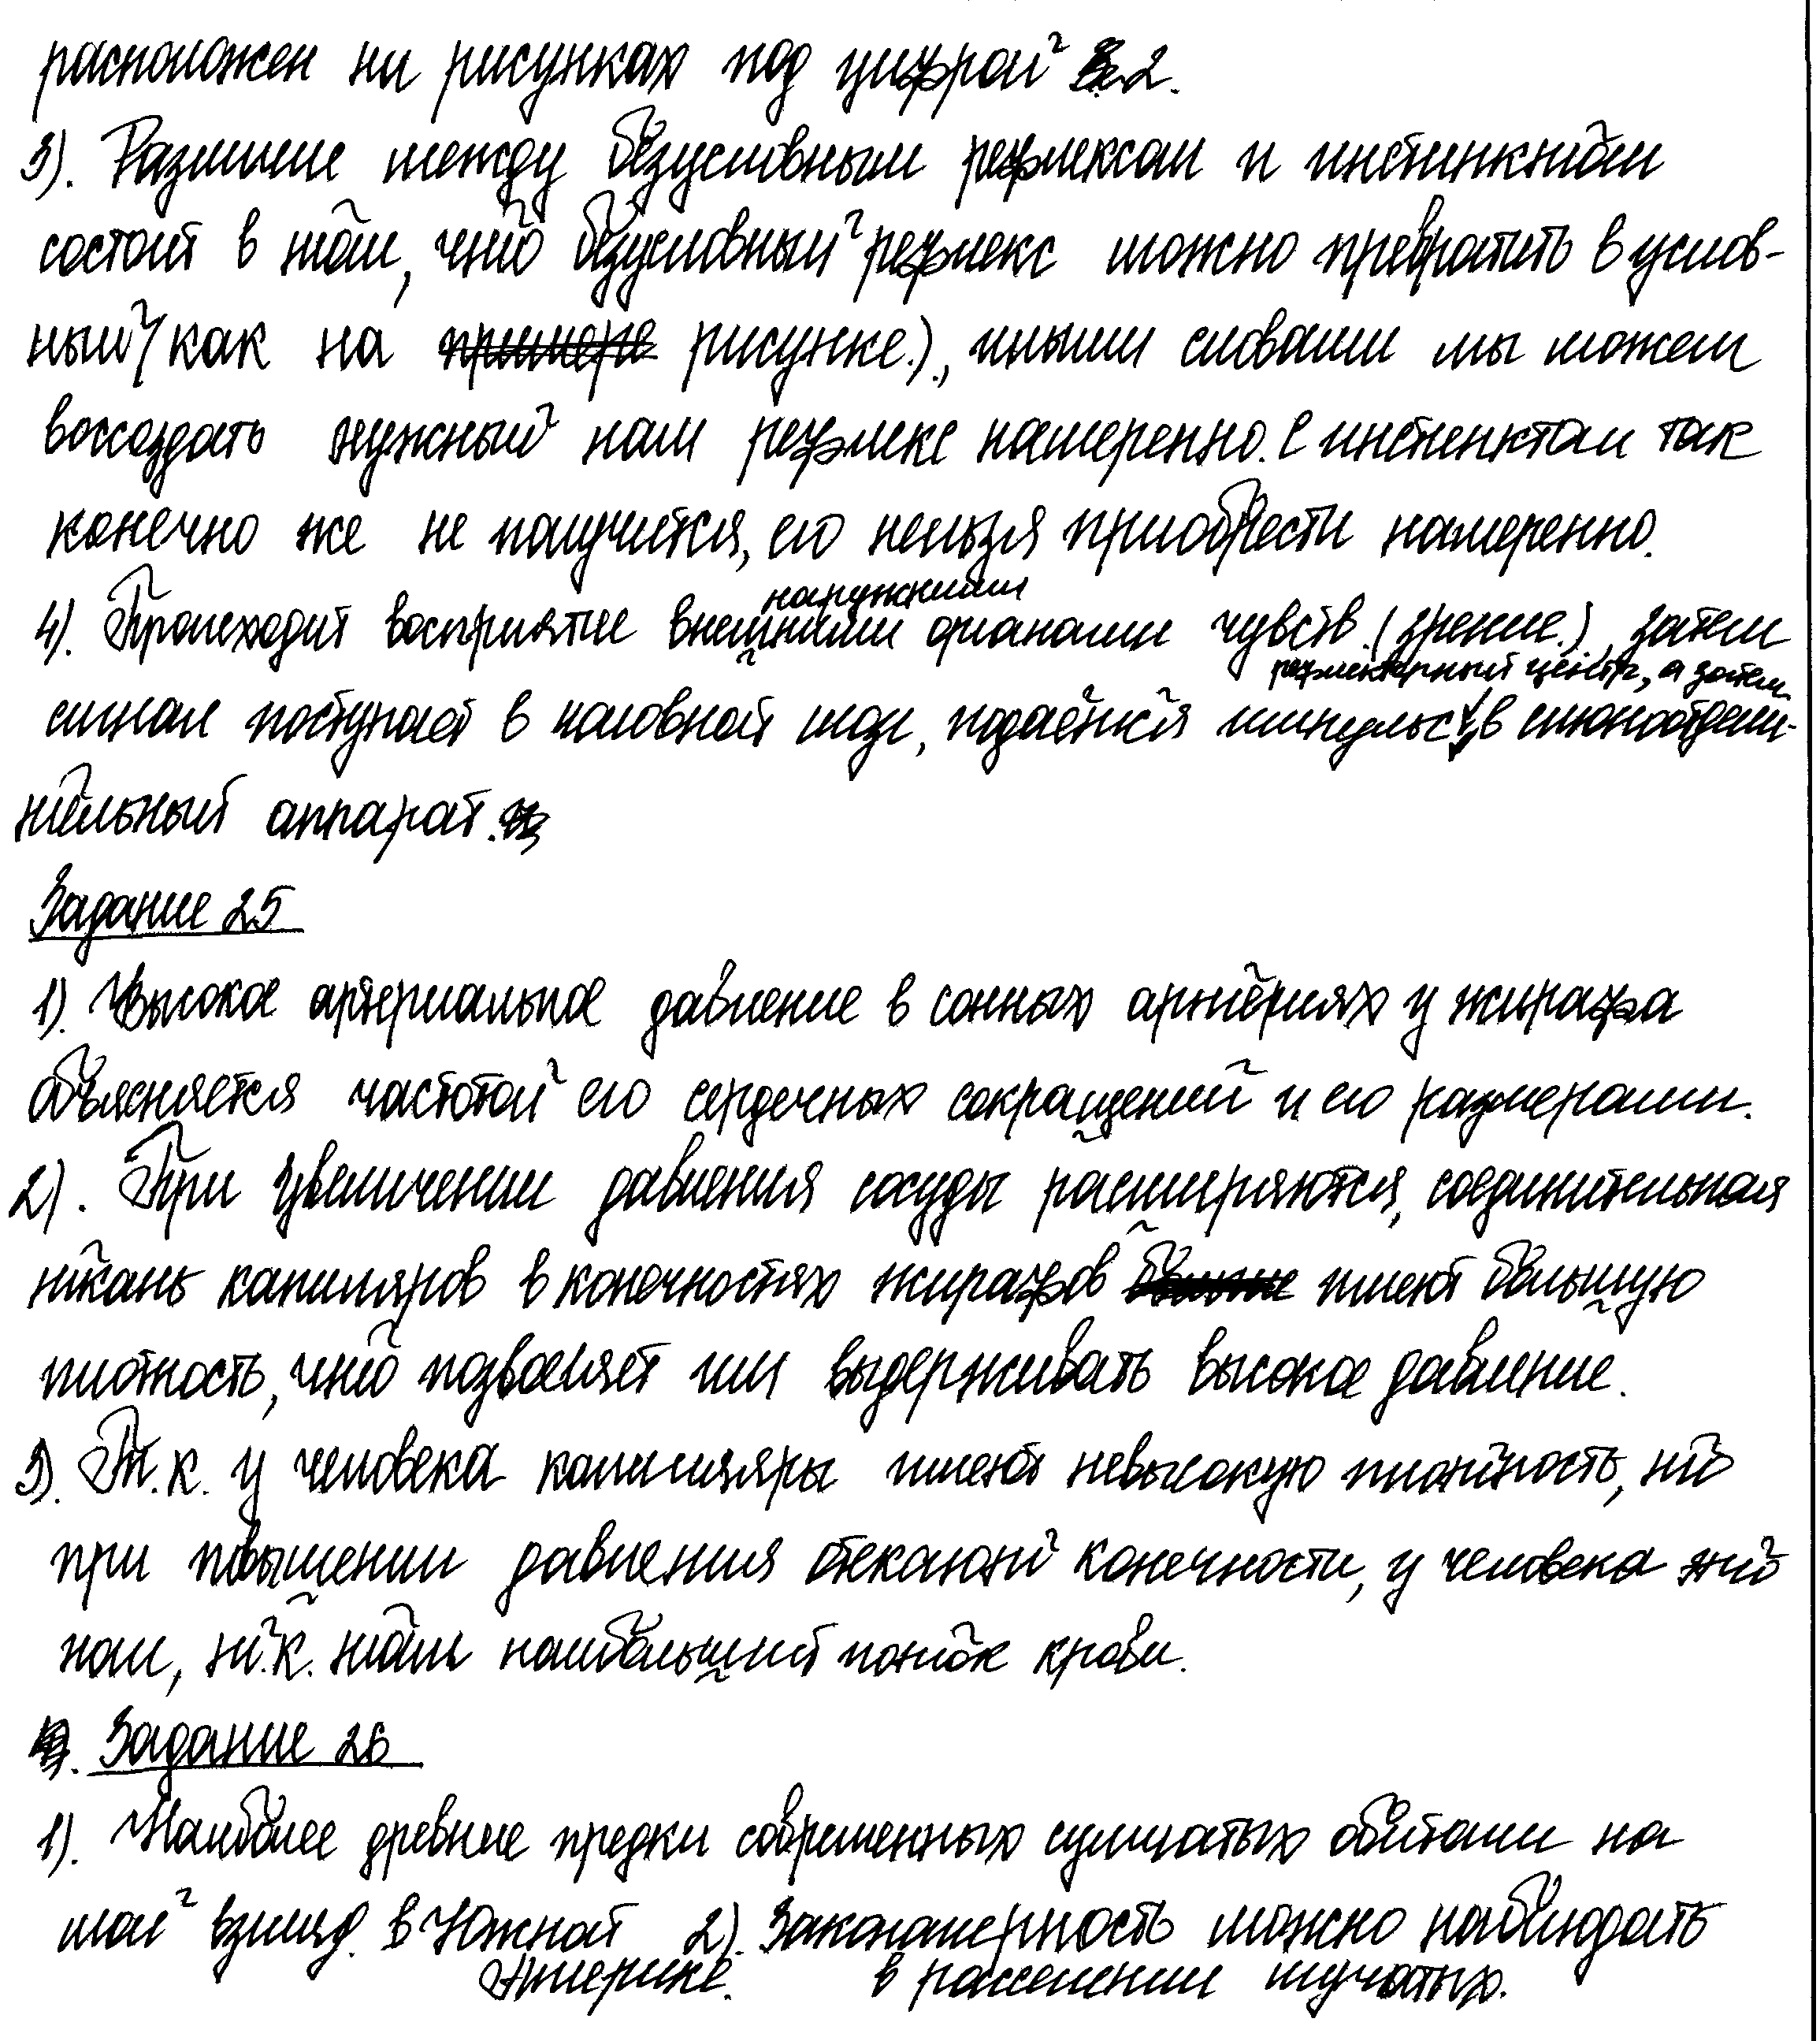 расположен на рисунках под цифрой 2.
3). Различие между безусловным рефлексом и инстинктом
состоит в том, что безусловный рефлекс можно превратить в услов-
ный (как на примере рисунке.), иными словами мы можем
воссоздать нужный нам рефлекс намеренно. С инстинктом так
конечно же не получится, его нельзя приобрести намеренно.
наружними
4). Происходит восприятие внешними органами чувств (зрение.), затем
рефлекторный центр, а затем
сигнал поступает в головной мозг, подаётся импульс в слюноотдели-
тельный аппарат.
Задание 25
1). Высокое артериальное давление в сонных артериях у жирафа
объясняется частотой его сердечных сокращений и его размерами.
2). При увеличении давления сосуды расширяются, соединительная
ткань капиляров в конечностях жирафов имеют большую
плотность, что позволяет им выдерживать высокое давление.
3). Т.к. у человека капилляры имеют невысокую плотность, то
при повышении давления отекают конечности, у человека это
ноги, т.к. там наибольший поток крови.
Задание 26
1). Наиболее древние предки современных сумчатых обитали на
мой взгляд в Южной 2). Закономерность можно наблюдать
Америке. в расселении сумчатых.